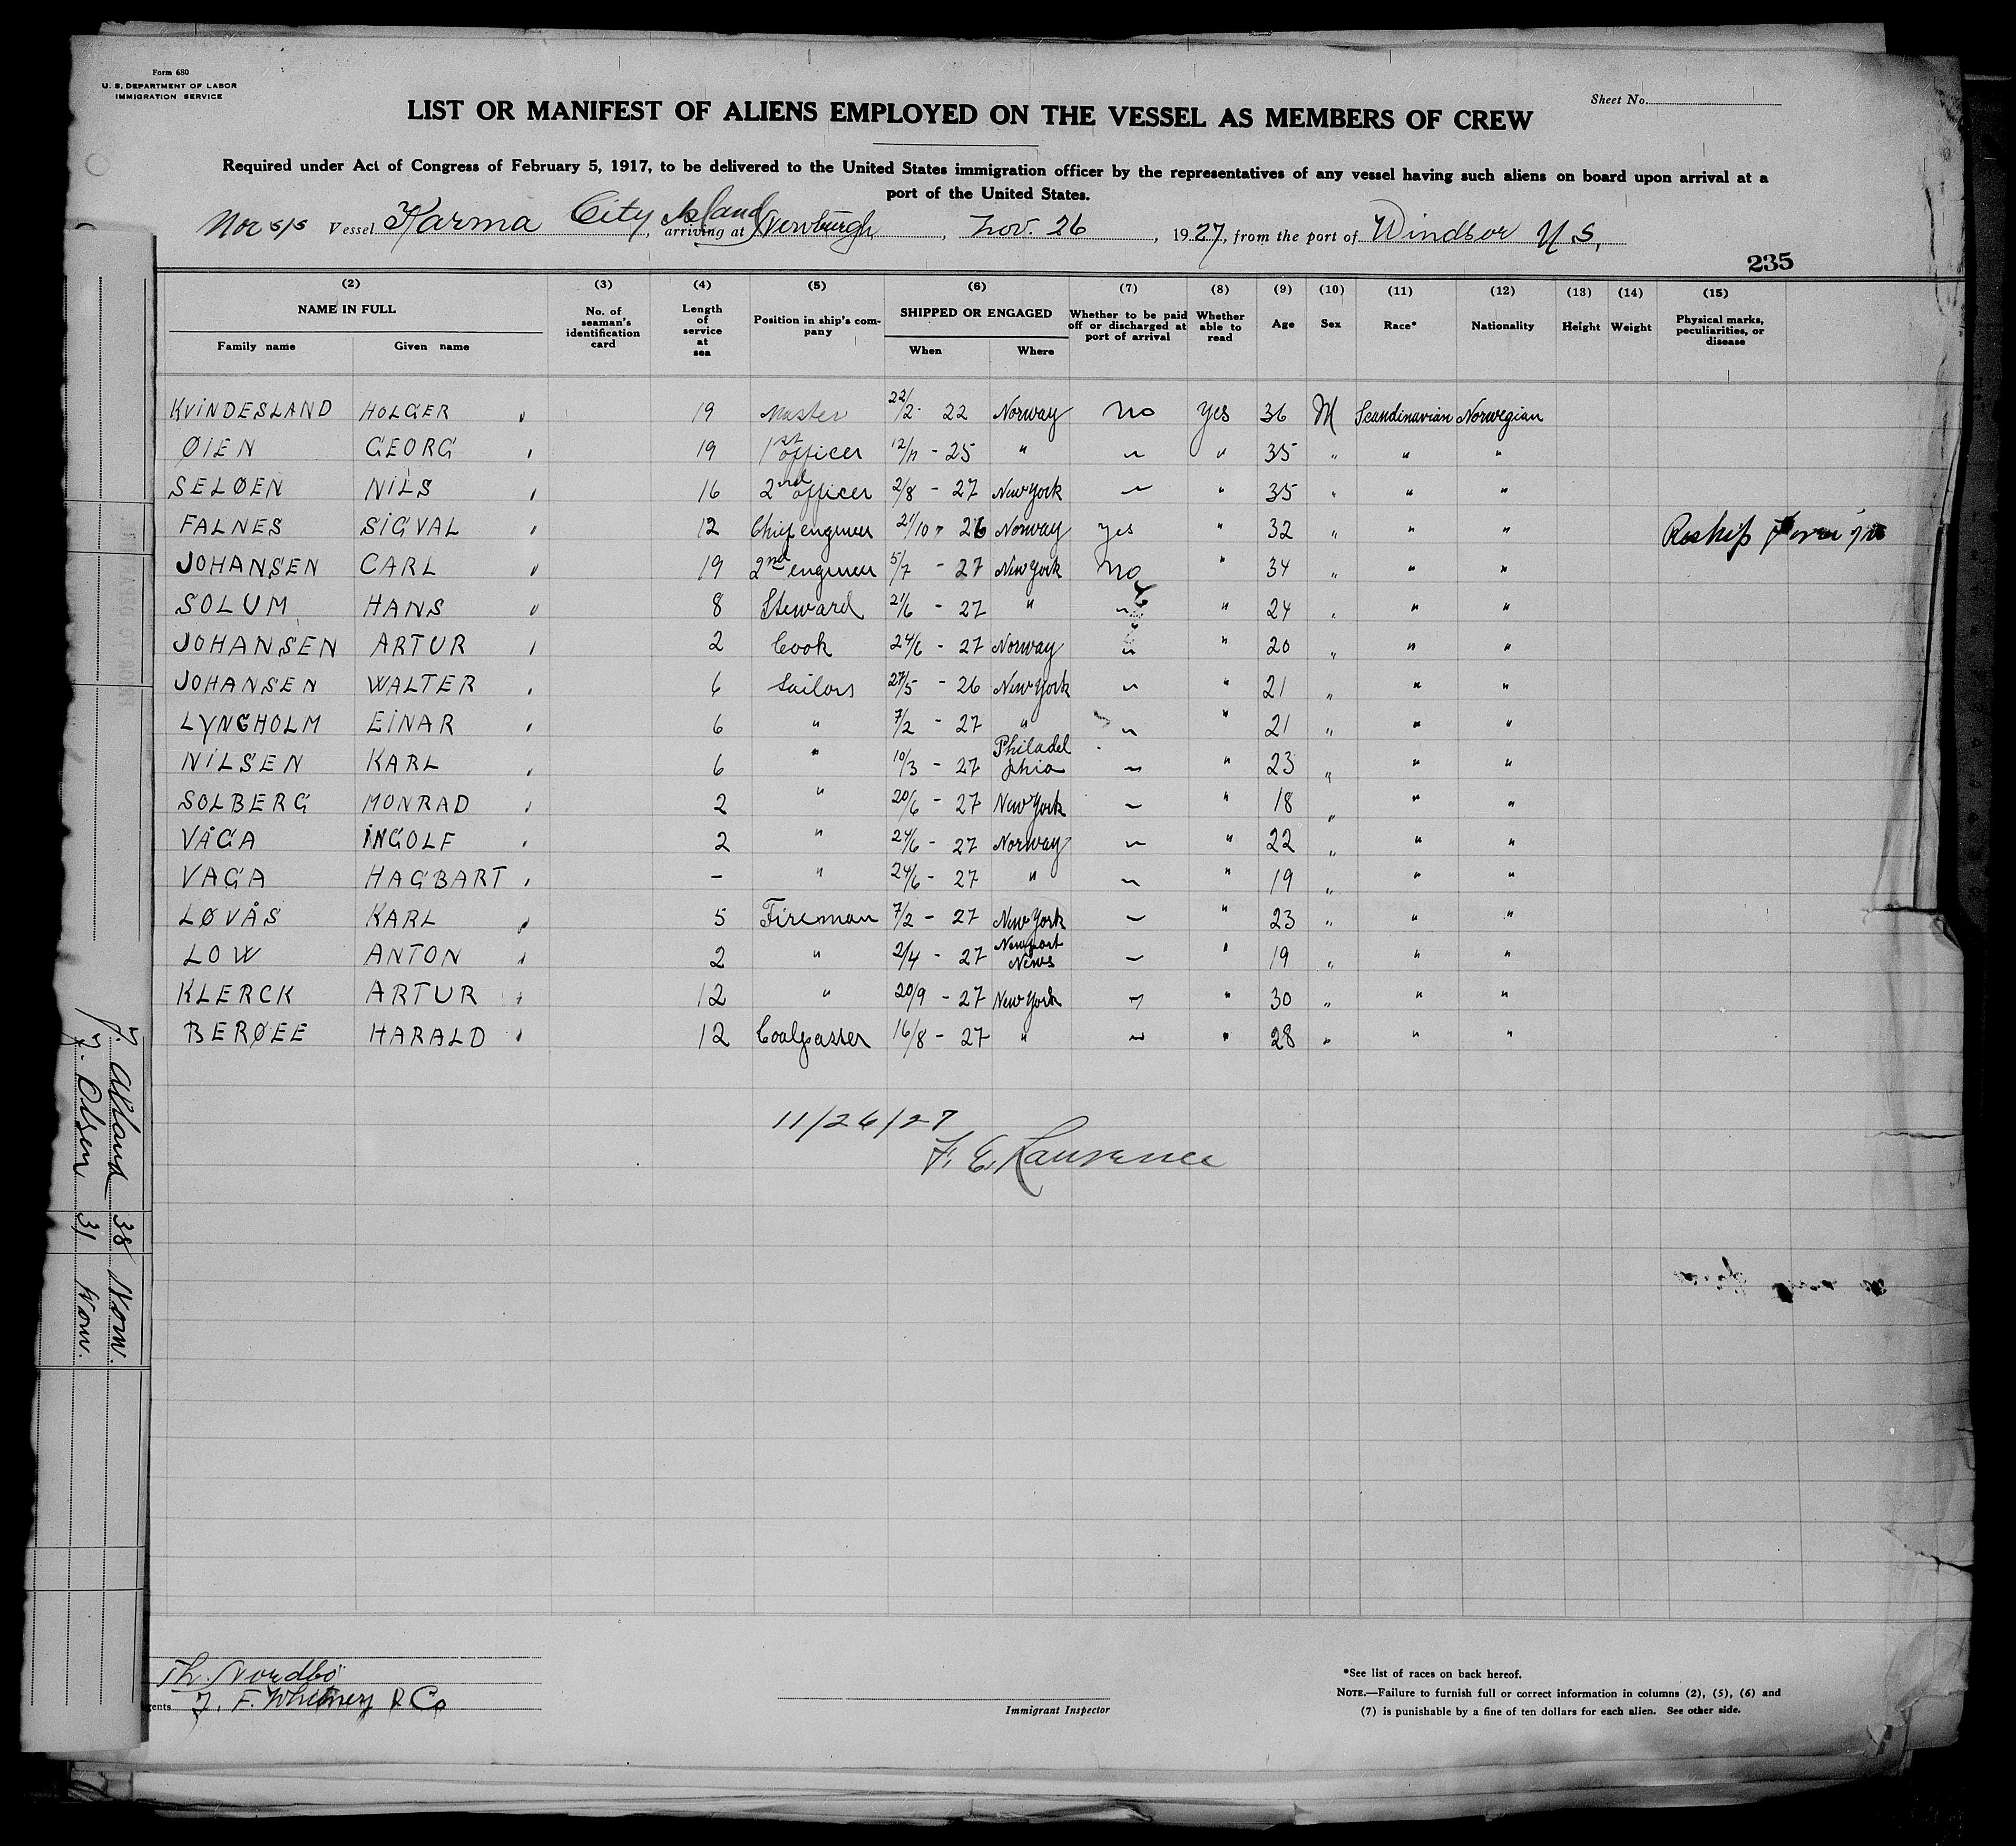 Form 680
U. S. DEPARTMENT OF LABOR
IMMIGRATION SERVICE
Sheet No.
LIST OR MANIFEST OF ALIENS EMPLOYED ON THE VESSEL AS MEMBERS OF CREW
Required under Act of Congress of February 5, 1917, to be delivered to the United States immigration officer by the representatives of any vessel having such aliens on board upon arrival at a
port of the United States.
Nor s/s Vessel Karma City Island, arriving at Newburgh, Nov. 26, 1927, from the port of Windsor N S.
235
(2) (3) (4) (5) (6) (7) (8) (9) (10) (11) (12) (13) (14) (15)
NAME IN FULL No. of seaman's identification card Length of service at sea Position in ship's company SHIPPED OR ENGAGED Whether to be paid off or discharged at port of arrival Whether able to read Age Sex Race* Nationality Height Weight Physical marks, peculiarities, or disease
Family name Given name When Where
KVINDESLAND HOLGER 19 Master 22/2 - 22 Norway No Yes 36 M Scandinavian Norwegian
ØIEN GEORG 19 1st officer 12/11 - 25 " " " 35 " " "
SELØEN NILS 16 2nd officer 2/8 - 27 New York " " 35 " " "
FALNES SIGVAL 12 Chief engineer 21/10 - 26 Norway yes " 32 " " " Reship Foreign
JOHANSEN CARL 19 2nd engineer 5/7 - 27 New York No " 34 " " "
SOLUM HANS 8 Steward 21/6 - 27 " " " 24 " " "
JOHANSEN ARTUR 2 Cook 24/6 - 27 Norway " " 20 " " "
JOHANSEN WALTER 6 Sailors 27/5 - 26 New York " " 21 " " "
LYNGHOLM EINAR 6 " 7/2 - 27 " " " 21 " " "
NILSEN KARL 6 " 10/3 - 27 Philadelphia " " 23 " " "
SOLBERG MONRAD 2 " 20/6 - 27 New York " " 18 " " "
VÅGA INGOLF 2 " 24/6 - 27 Norway " " 22 " " "
VAGA HAGBART - " 24/6 - 27 " " " 19 " " "
LØVÅS KARL 5 Fireman 7/2 - 27 New York " " 23 " " "
LOW ANTON 2 " 2/4 - 27 Newport News " " 19 " " "
KLERCK ARTUR 12 " 20/9 - 27 New York " " 30 " " "
BERØEE HARALD 12 Coalpasser 16/8 - 27 " " " 28 " " "
11/26/27
F. E. Lawrence
38 Norw.
J. Olsen 31 Norw.
Th. Nordbö
gents J. F. Whitney & Co
Immigrant Inspector
*See list of races on back hereof.
NOTE.—Failure to furnish full or correct information in columns (2), (5), (6) and
(7) is punishable by a fine of ten dollars for each alien. See other side.